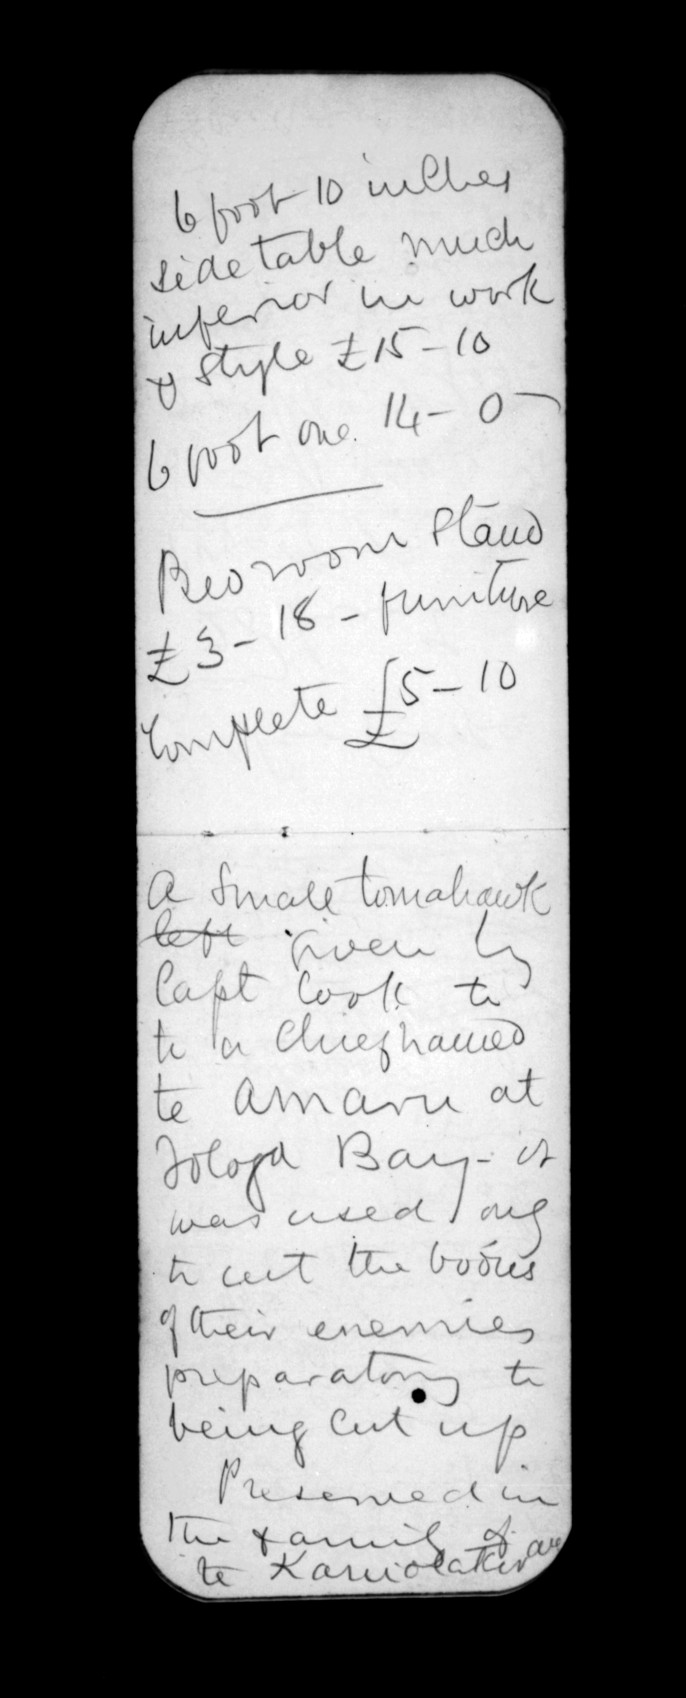 6 foot 10 inches
side table much
inferior in work
& style £15-10
6 foot one. 14-0
Bedroom Stand
£3-18- furniture
Complete £5-10
A small tomahawk
left given by
Capt Cook to
to a chief named
te Amaru at
Tologa Bay - it
was used only
to cut the bodies
of their enemies
preparatory to
being cut up
Preserved in
the family of
te